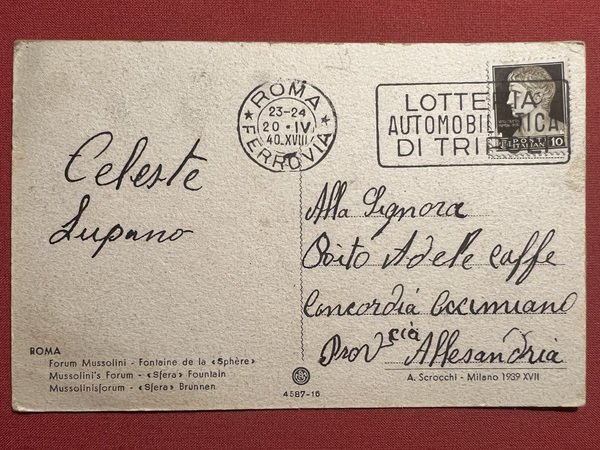 ROMA
23-24
20 · IV
40.XVIII
FERROVIA
LOTTE TA
AUTOMOBIL TICA
DI TRI
POSTE
ITALIAN 10
Celeste
Lupano
Alla Signora
Adele caffe
Concordia Occimiano
Prov cia Allesandria
ROMA
Forum Mussolini - Fontaine de la «Sphère»
Mussolini's Forum - «Sfera» Fountain
Mussolinisforum - «Sfera» Brunnen
4587-16
A. Scrocchi - Milano 1939 XVII